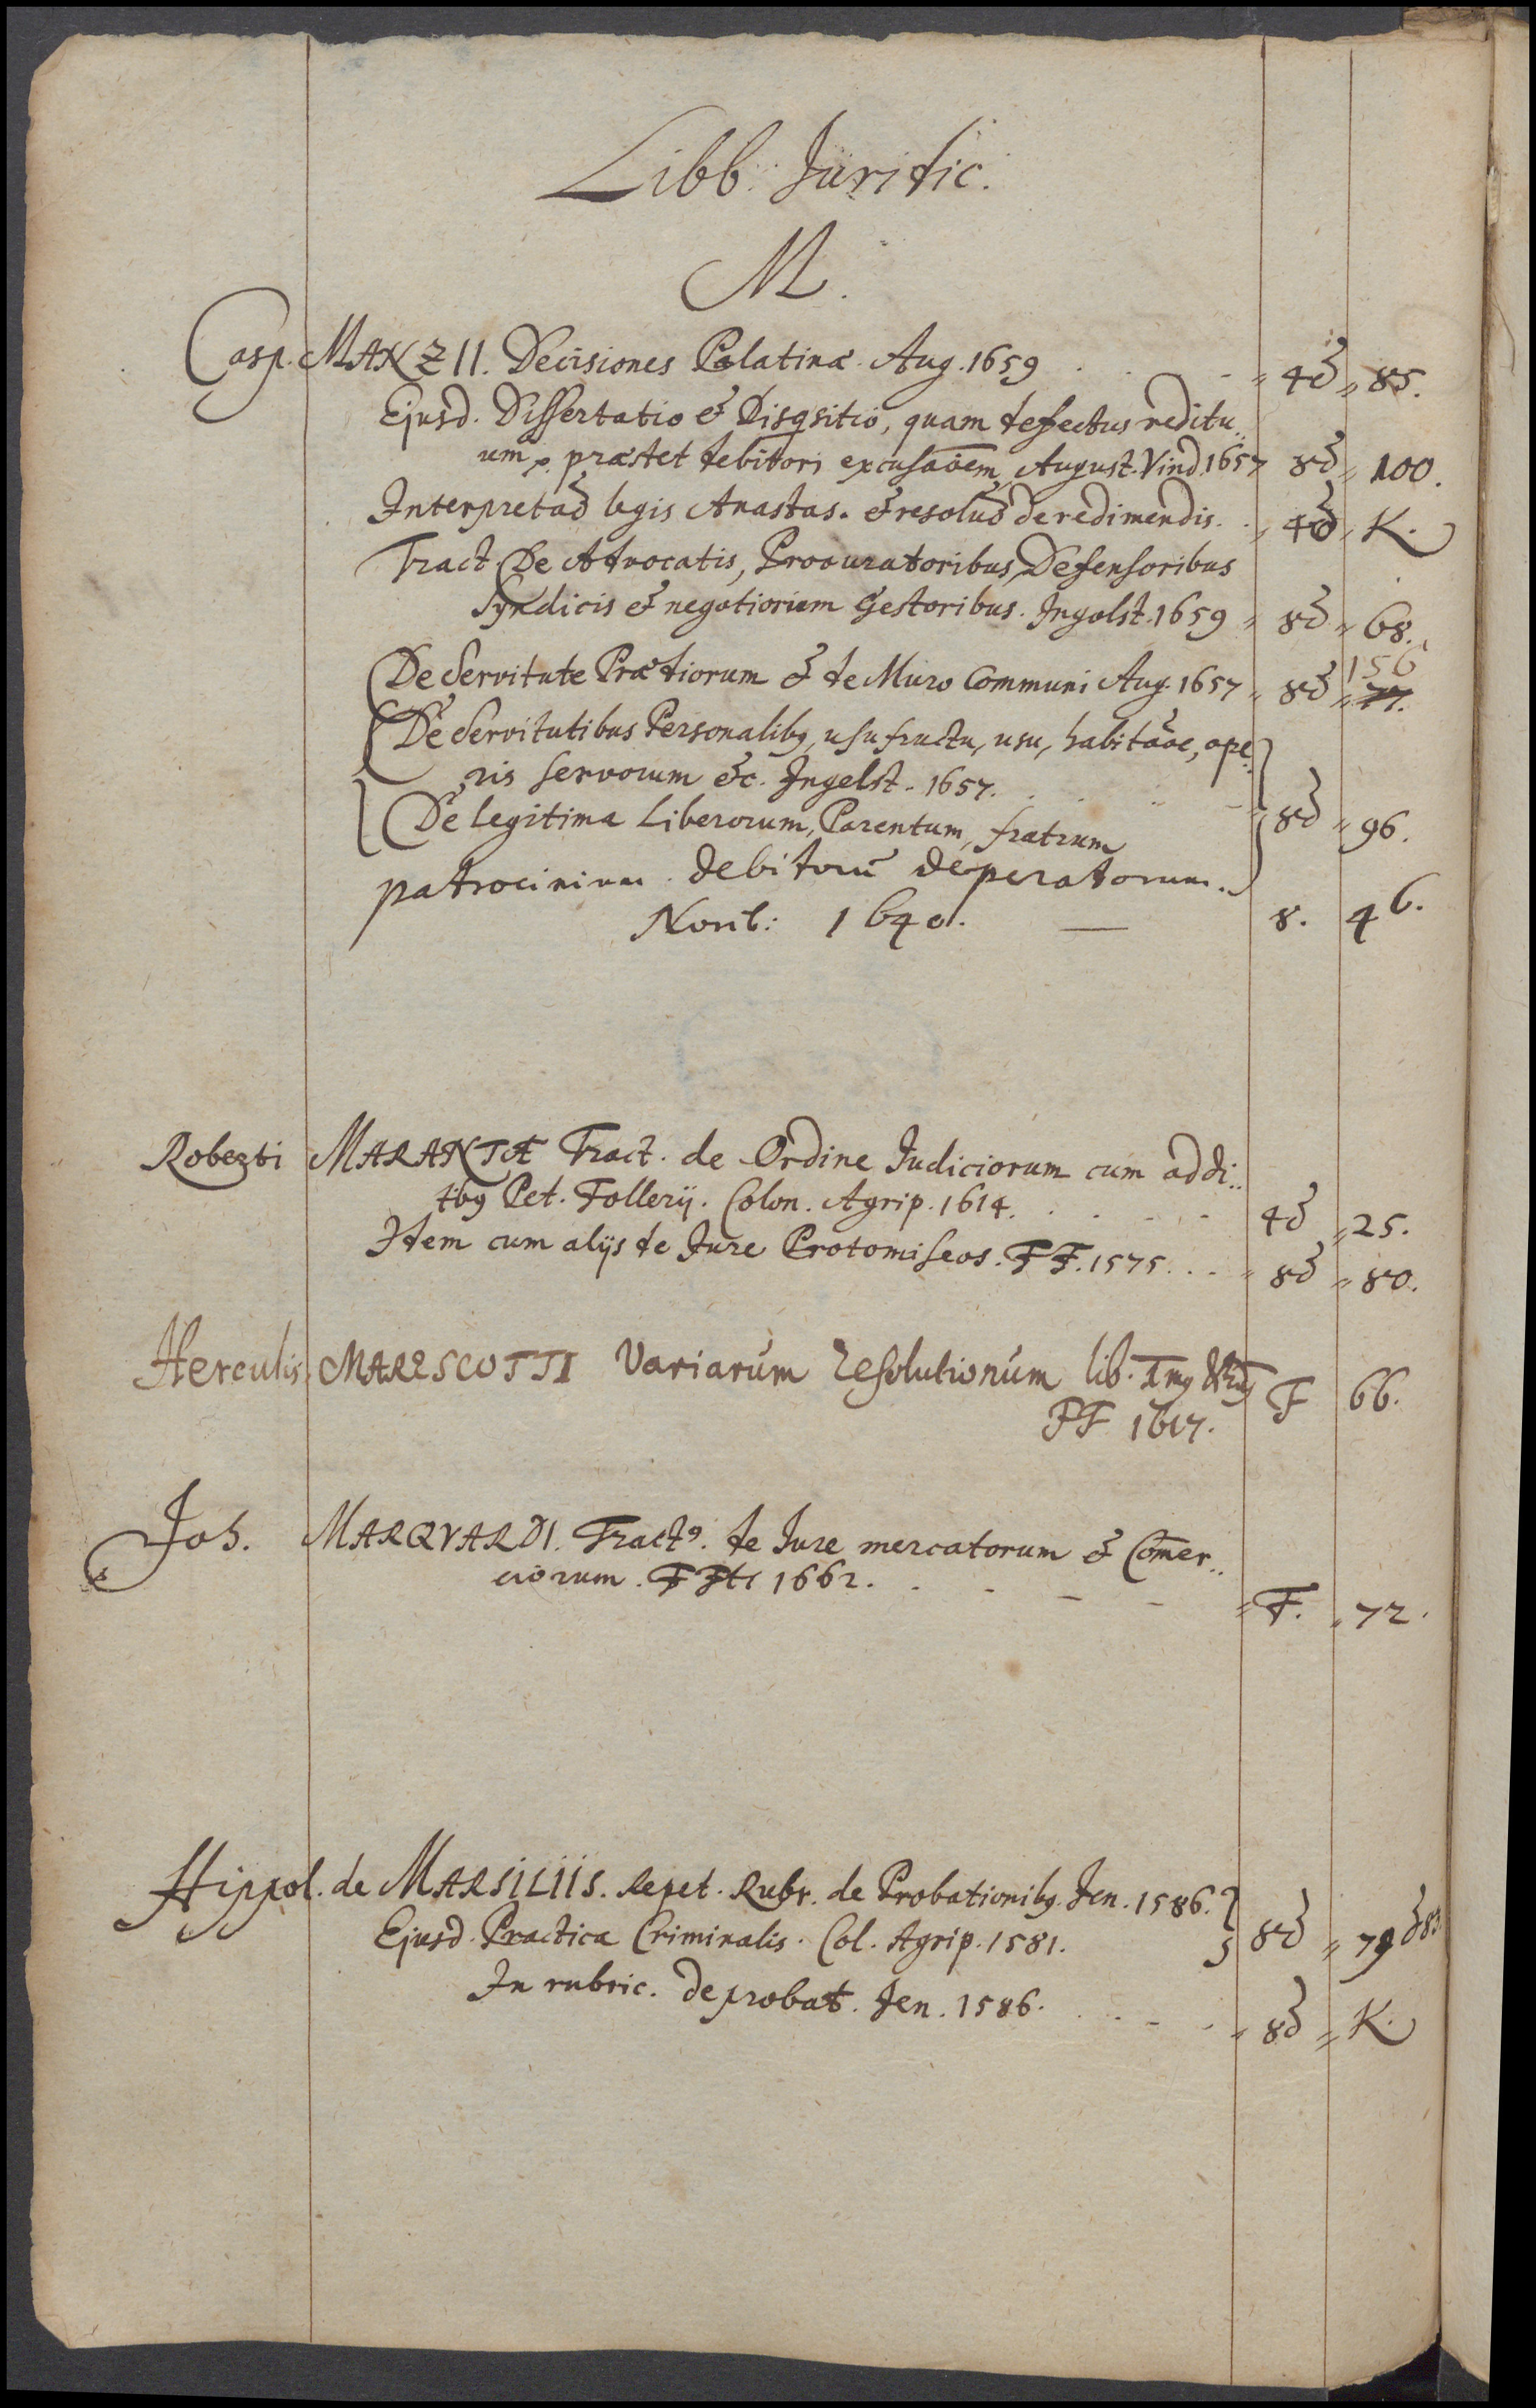 Libb. Juridic.
M.
Casp. MANZII. Decisiones Palatinæ. Aug. 1659 . . . . 4ö 85.
Ejusd. Dissertatio & Disqsitio, quam defectus reditu..
um præstet debitori excusaōem, August. Vind. 1657 8ö 100.
Interpretaō legis Anastas. & resoluō de redimendis. 4ö K.
Tract. De Advocatis, Procuratoribus, Defensoribus
Syndicis & negotiorum Gestoribus. Ingolst. 1659 8ö 68.
156
De Servitute Prædiorum & de Muro Communi Aug. 1657 8ö 77.
De Servitutibus Personalibq, usufructu, usu, habitaōe, ope..
ris servorum &c. Ingolst. 1657.
De legitima Liberorum, Parentum, fratrum 8ö 96.
patrocinium debitorū deperatorum.
Norib: 1640. — 8. 46.
Roberti MARANTÆ Tract. de Ordine Judiciorum cum addi..
tbq Pet. Follerij. Colon. Agrip. 1614. . . . 4ö 25.
Item cum alijs de Jure Protomiseos. FF. 1575. . . 8ö 80.
Herculis MARESCOTTI Variarum resolutionum lib. F 66.
FF 1617.
Joh. MARQVARDI. Tract9. de Jure mercatorum & Comer..
ciorum. FFti 1662. . - - - F. 72.
Hippol. de MARSILIIS. Repet. Rubr. de Probationibq. Jen. 1586.
Ejusd. Practica Criminalis. Col. Agrip. 1581. 8ö 79
In rubric. de probat. Jen. 1586. . . - 8ö K.